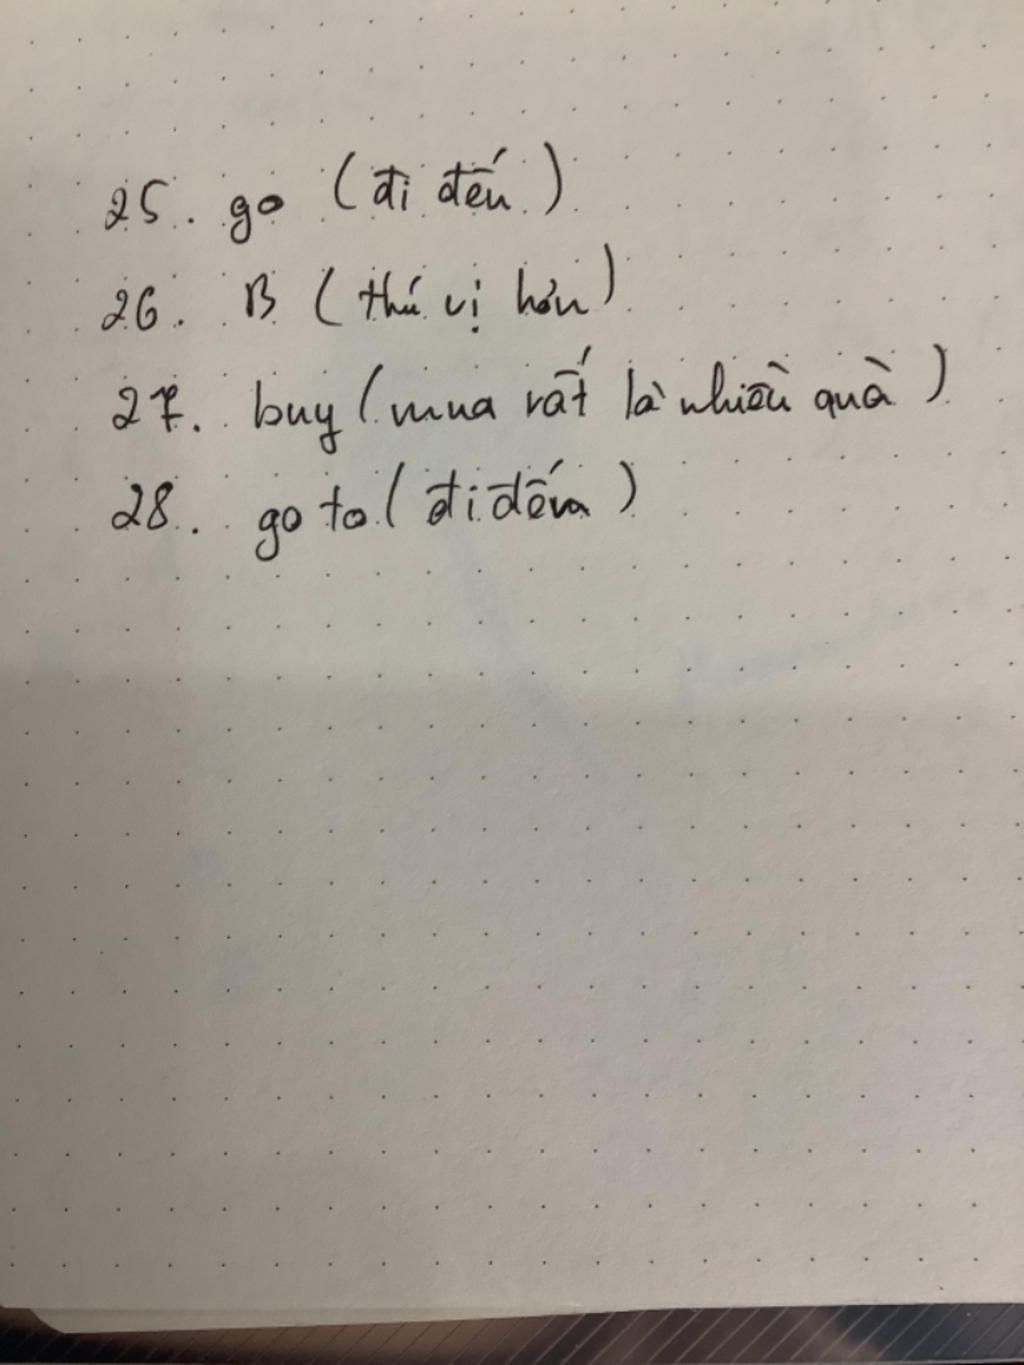 25. go (đi đến)
26. B (thú vị hơn)
27. buy (mua rất là nhiều quà)
28. go to (đi đến)